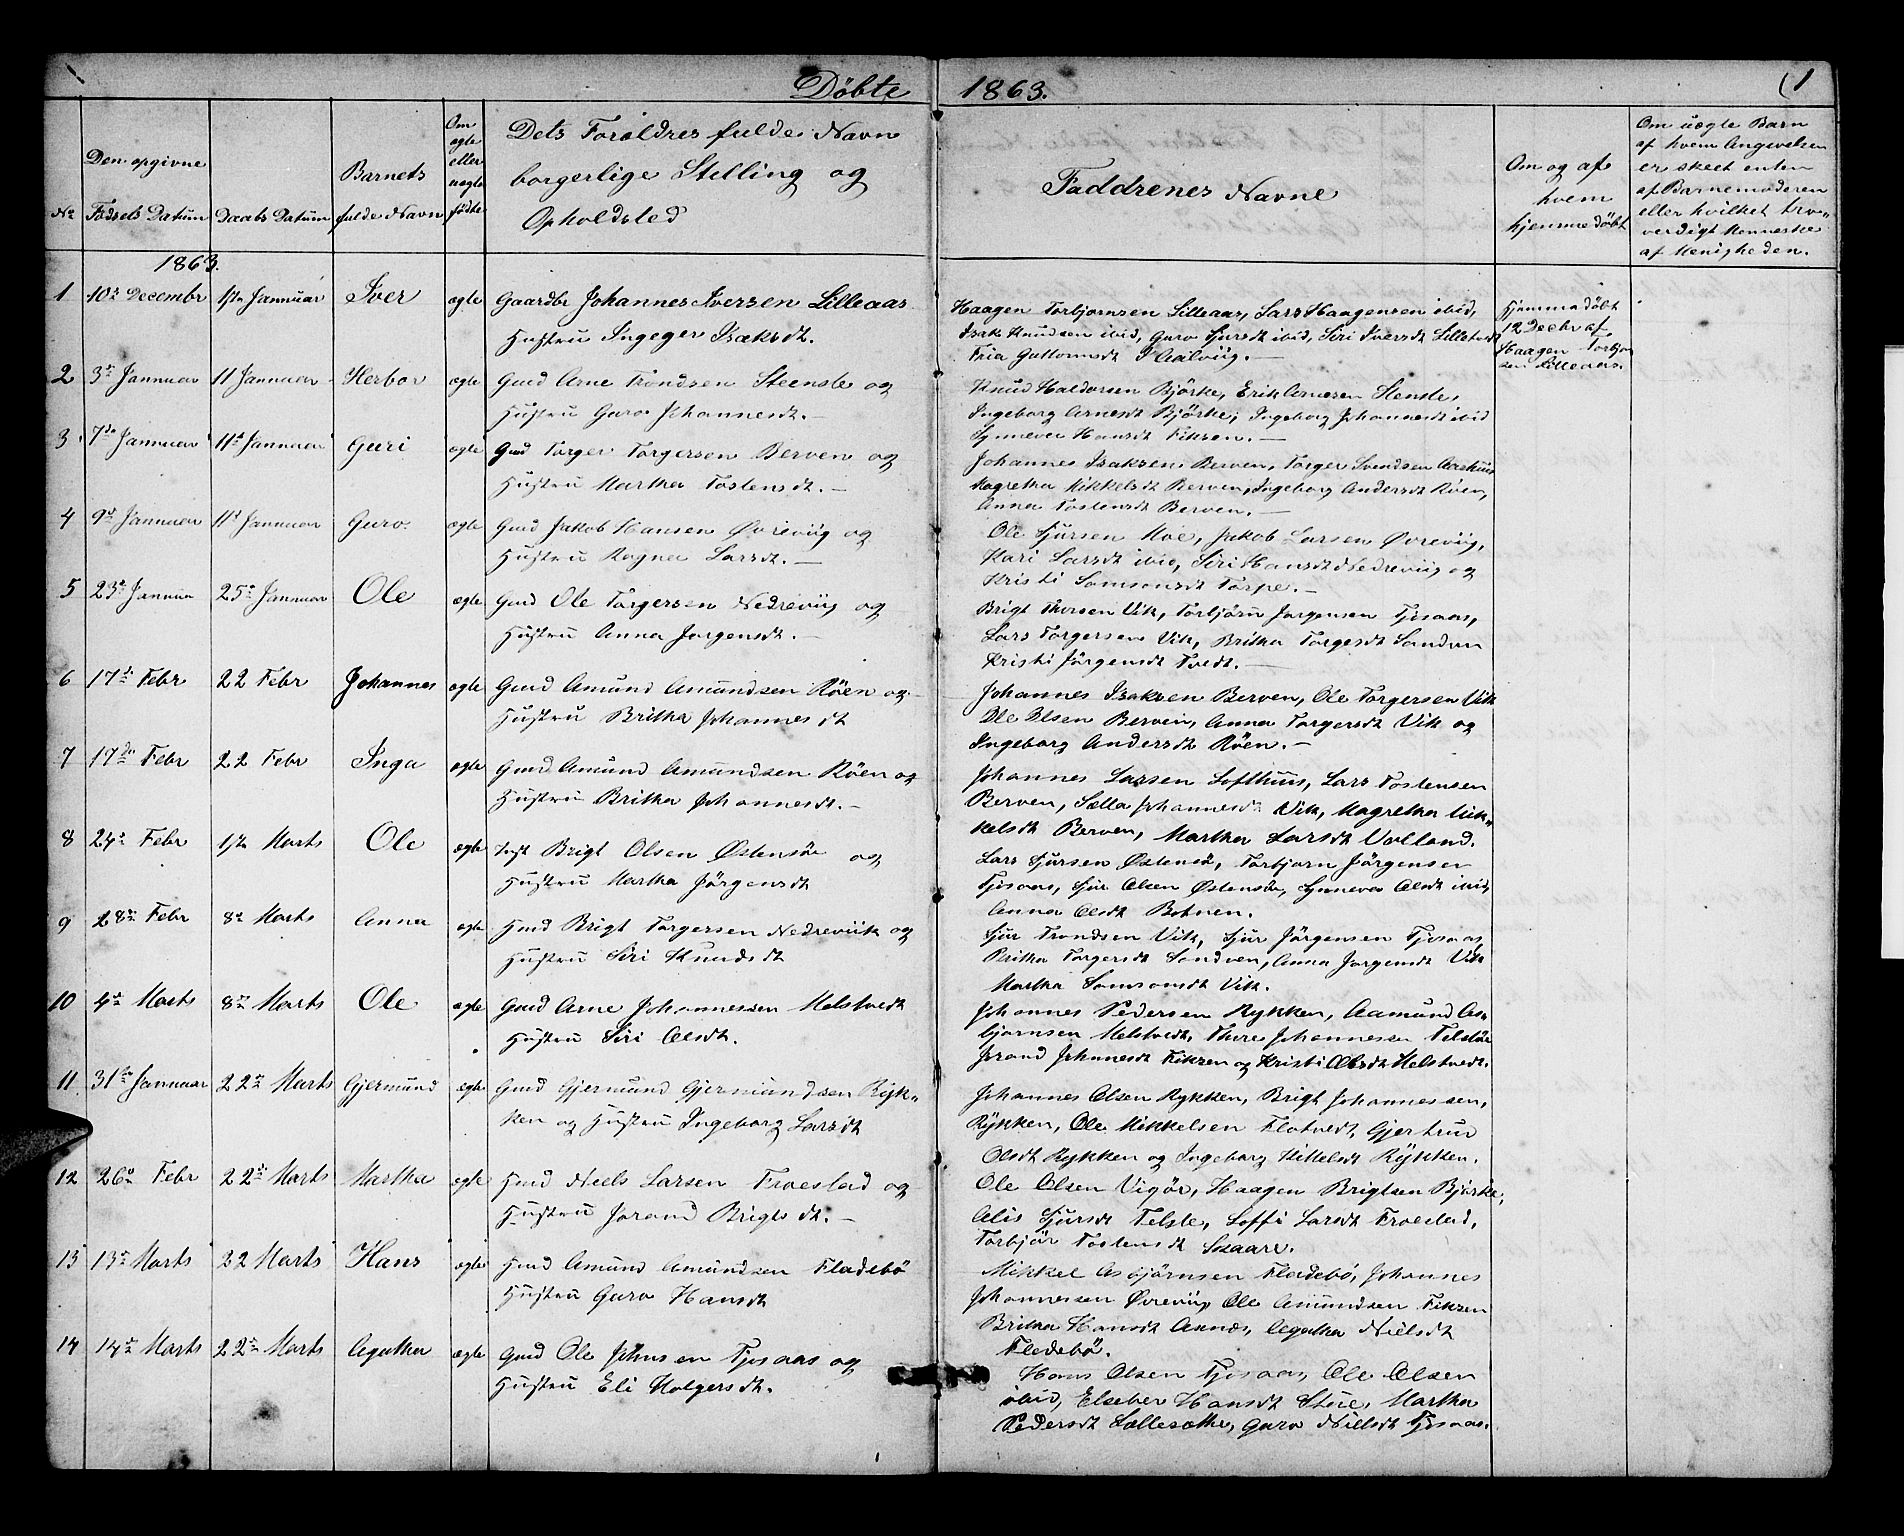 Döbte 1863. (1
No
Den opgivne Fødsels Datum
Daabs Datum
Barnets fulde Navn
Om ægte eller uægte födte
Dets Foræoldres fulde Navn borgerlige Stelling og Opholdsted
Faddrenes Navne
Om og af hvem hjemmedöbt
Om uægte Barn af hvem Angivelsen er skeet enten af Barnemoderen eller hvilket tro„ verdigt Menneske af Menigheden.
1863.
1 10de Decembr 1ste Januar Iver ægte Gaardbr Johannes Iversen Lilleaas
Hustru Ingeger Isaksdt.
Haagen Torbjornsen Lilleaas, Lars Haagensen ibid,
Isak Knudsen ibid, Guro Sjursdt ibid, Siri Iversdt Lilletvedt
Fria Guttormsdt I Aalviig.—
Hjemmedöbt
12 Decbr af
Haagen Torbjorn
sen Lilleaas.
2 3de Januar 11 Januar Herbor ægte Gmd Arne Trondsen Steensle og
Hustru Guro Johannesdt.—
Knud Haldorsen Björke, Erik Arnesen Stensle,
Ingeborg Arnesdt Björke, Ingeborg Johannesdt ibid
Synneva Hansdt Fiksen.—
3 7de Januar 11te Januar Guri ægte Gmd Torger Torgersen Berven og
Hustru Martha Tostensdt.—
Johannes Isaksen Berven, Torger Svendsen Aarhuus
Magretha Mikkelsdt Berven, Ingeborg Andersdt Röen,
Anna Tostensdt Berven.—
4 9de Januar 11te Januar Guro ægte Gmd Jakob Hansen Övreviig og
Hustru Ragna Larsdt.—
Ole Sjursen Moe, Jakob Larsen Övreviig,
Kari Larsdt ibid, Siri Hansdt Nedreviig og
Kristi Samsonsdt Torpe.—
5 23de Januar 25de Januar Ole ægte Gmd Ole Torgersen Nedreviig og
Hustru Anna Jorgensdt.—
Brigt Thorsen Vik, Torbjörn Jorgensen Tjosaas,
Lars Torgersen Vik, Britha Torgersdt Sandven
Kristi Jörgensdt Tvedt.—
6 17de Febr 22 Febr Johannes ægte Gmd Amund Amundsen Röen og
Hustru Britha Johannesdt
Johannes Isaksen Berven, Ole Torgersen Vik
Ole Olsen Berven, Anna Torgersdt Vik og
Ingeborg Andersdt Röen.—
7 17de Febr 22 Febr Inga ægte Gmd Amund Amundsen Röen og
Hustru Britha Johannesdt.—
Johannes Larsen Lofthuus, Lars Tostensen
Berven, Sælla Johannesdt Vik, Magretha Mik„
kelsdt Berven, Martha Larsdt Valland.
8 24de Febr 1ste Marts Ole ægte Inst Brigt Olsen Östensöe og
Hustru Martha Jörgensdt
Lars Sjursen Östensö, Torbjorn Jörgensen
Tjosaas, Sjur Olsen Östensöe, Synneva Olsdt ibid,
Anna Olsdt Botnen.
9 28de Febr 8de Marts Anna ægte Gmd Brigt Torgersen Nedreviik og
Hustru Siri Knudsdt
Sjur Trondsen Vik, Sjur Jörgensen Tjosaas,
Britha Torgersdt Sandven, Anna Jorgensdt Vik
Martha Samsonsdt Vik.
10 4de Marts 8de Marts Ole ægte Gmd Arne Johannessen Melstvedt
Hustru Siri Olsdt.
Johannes Pedersen Rykken, Aamund As„
bjornsen Melstvedt, Thore Johannessen Telstöe
Jorand Johansdt Fiksen og Kristi Olsdt Melstvedt.
11 31te Januar 22de Marts Gjermund ægte Gmd Gjermund Gjermundsen Ryk„
ken og Hustru Ingeborg Larsdt
Johannes Olsen Rykken, Brigt Johannessen,
Rykken, Ole Mikkelsen Flotvedt, Gjertrud
Olsdt Rykken og Ingeborg Kittelsdt Rykken.
12 26de Febr 22de Marts Martha ægte Gmd Neels Larsen Froestad og
Hustru Jorand Brigtsdt.—
Ole Olsen Vigör, Haagen Brigtsen Björke,
Alis Sjursdt Telste, Soffi Larsdt Froestad,
Torbjör Tostensdt Skaare.
13 13de Marts 22 Marts Hans ægte Gmd Amund Amundsen Fladebö
Hustru Guro Hansdt
Mikkel Asbjörnsen Fladebö, Johannes
Johannessen Övreviig Ole Amundsen Fiksen
Britha Hansdt Aknæs, Agatha Nielsdt
Fladebö.
14 14de Marts 22de Marts Agatha ægte Gmd Ole Johnsen Tjosaas og
Hustru Eli Holgersdt.
Hans Olsen Tjosaas, Ole Olsen
ibid, Elseber Hansdt Stue, Martha
Pedersdt Sallesæthe, Guro Nielsdt Tjosaas.